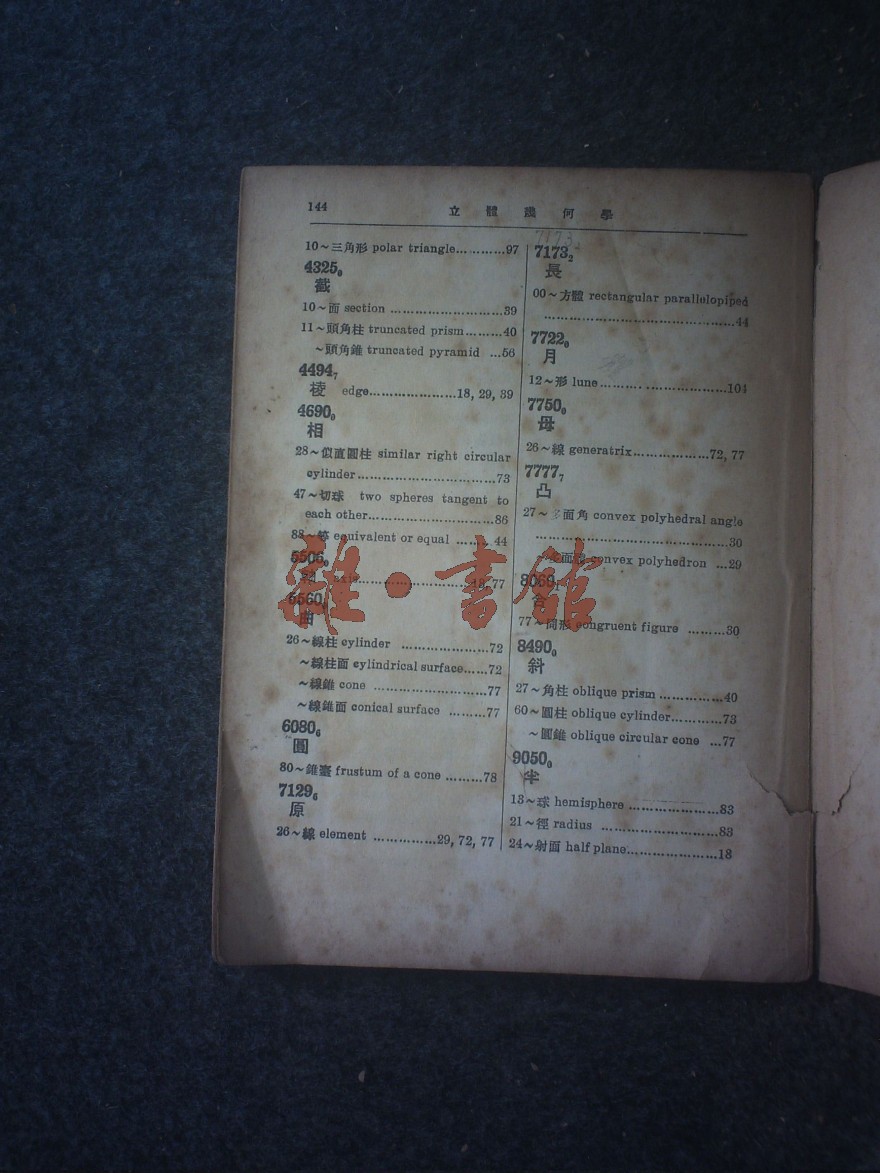 144
立體幾何學
10～三角形 polar triangle............97
4325₀
截
10～面 section ............................39
11～頭角柱 truncated prism.........40
～頭角錐 truncated pyramid ...56
4494₇
棱 edge.....................18, 29, 39
4690₀
相
28～似直圓柱 similar right circular
cylinder..................................73
47～切球 two spheres tangent to
each other...............................86
88～等 equivalent or equal ......... 44
5506₀
軸 axis...........................18, 77
5560₀
曲
26～線柱 cylinder .....................72
～線柱面 cylindrical surface......72
～線錐 cone ............................77
～線錐面 conical surface .........77
6080₆
圓
80～錐臺 frustum of a cone .........78
7129₆
原
26～線 element ...............29, 72, 77
7173₂
7173₂
長
00～方體 rectangular parallelopiped
...............................................44
7722₀
月
12～形 lune................................104
7750₀
母
26～線 generatrix..................72, 77
7777₇
凸
27～多面角 convex polyhedral angle
................................................30
～多面體 convex polyhedron ...29
8060₁
合
77～同形 congruent figure .........30
8490₀
斜
27～角柱 oblique prism ...............40
60～圓柱 oblique cylinder............73
～圓錐 oblique circular cone ...77
9050₀
半
13～球 hemisphere ......................83
21～徑 radius ............................83
24～射面 half plane......................18
雜·書館